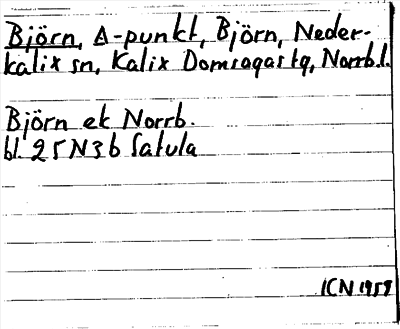 Björn, Δ-punkt, Björn, Neder-
kalix sn, Kalix Domsagas tg, Norrb.l.
Björn ek Norrb.
bl. 25N3b Satula
ICN 1959